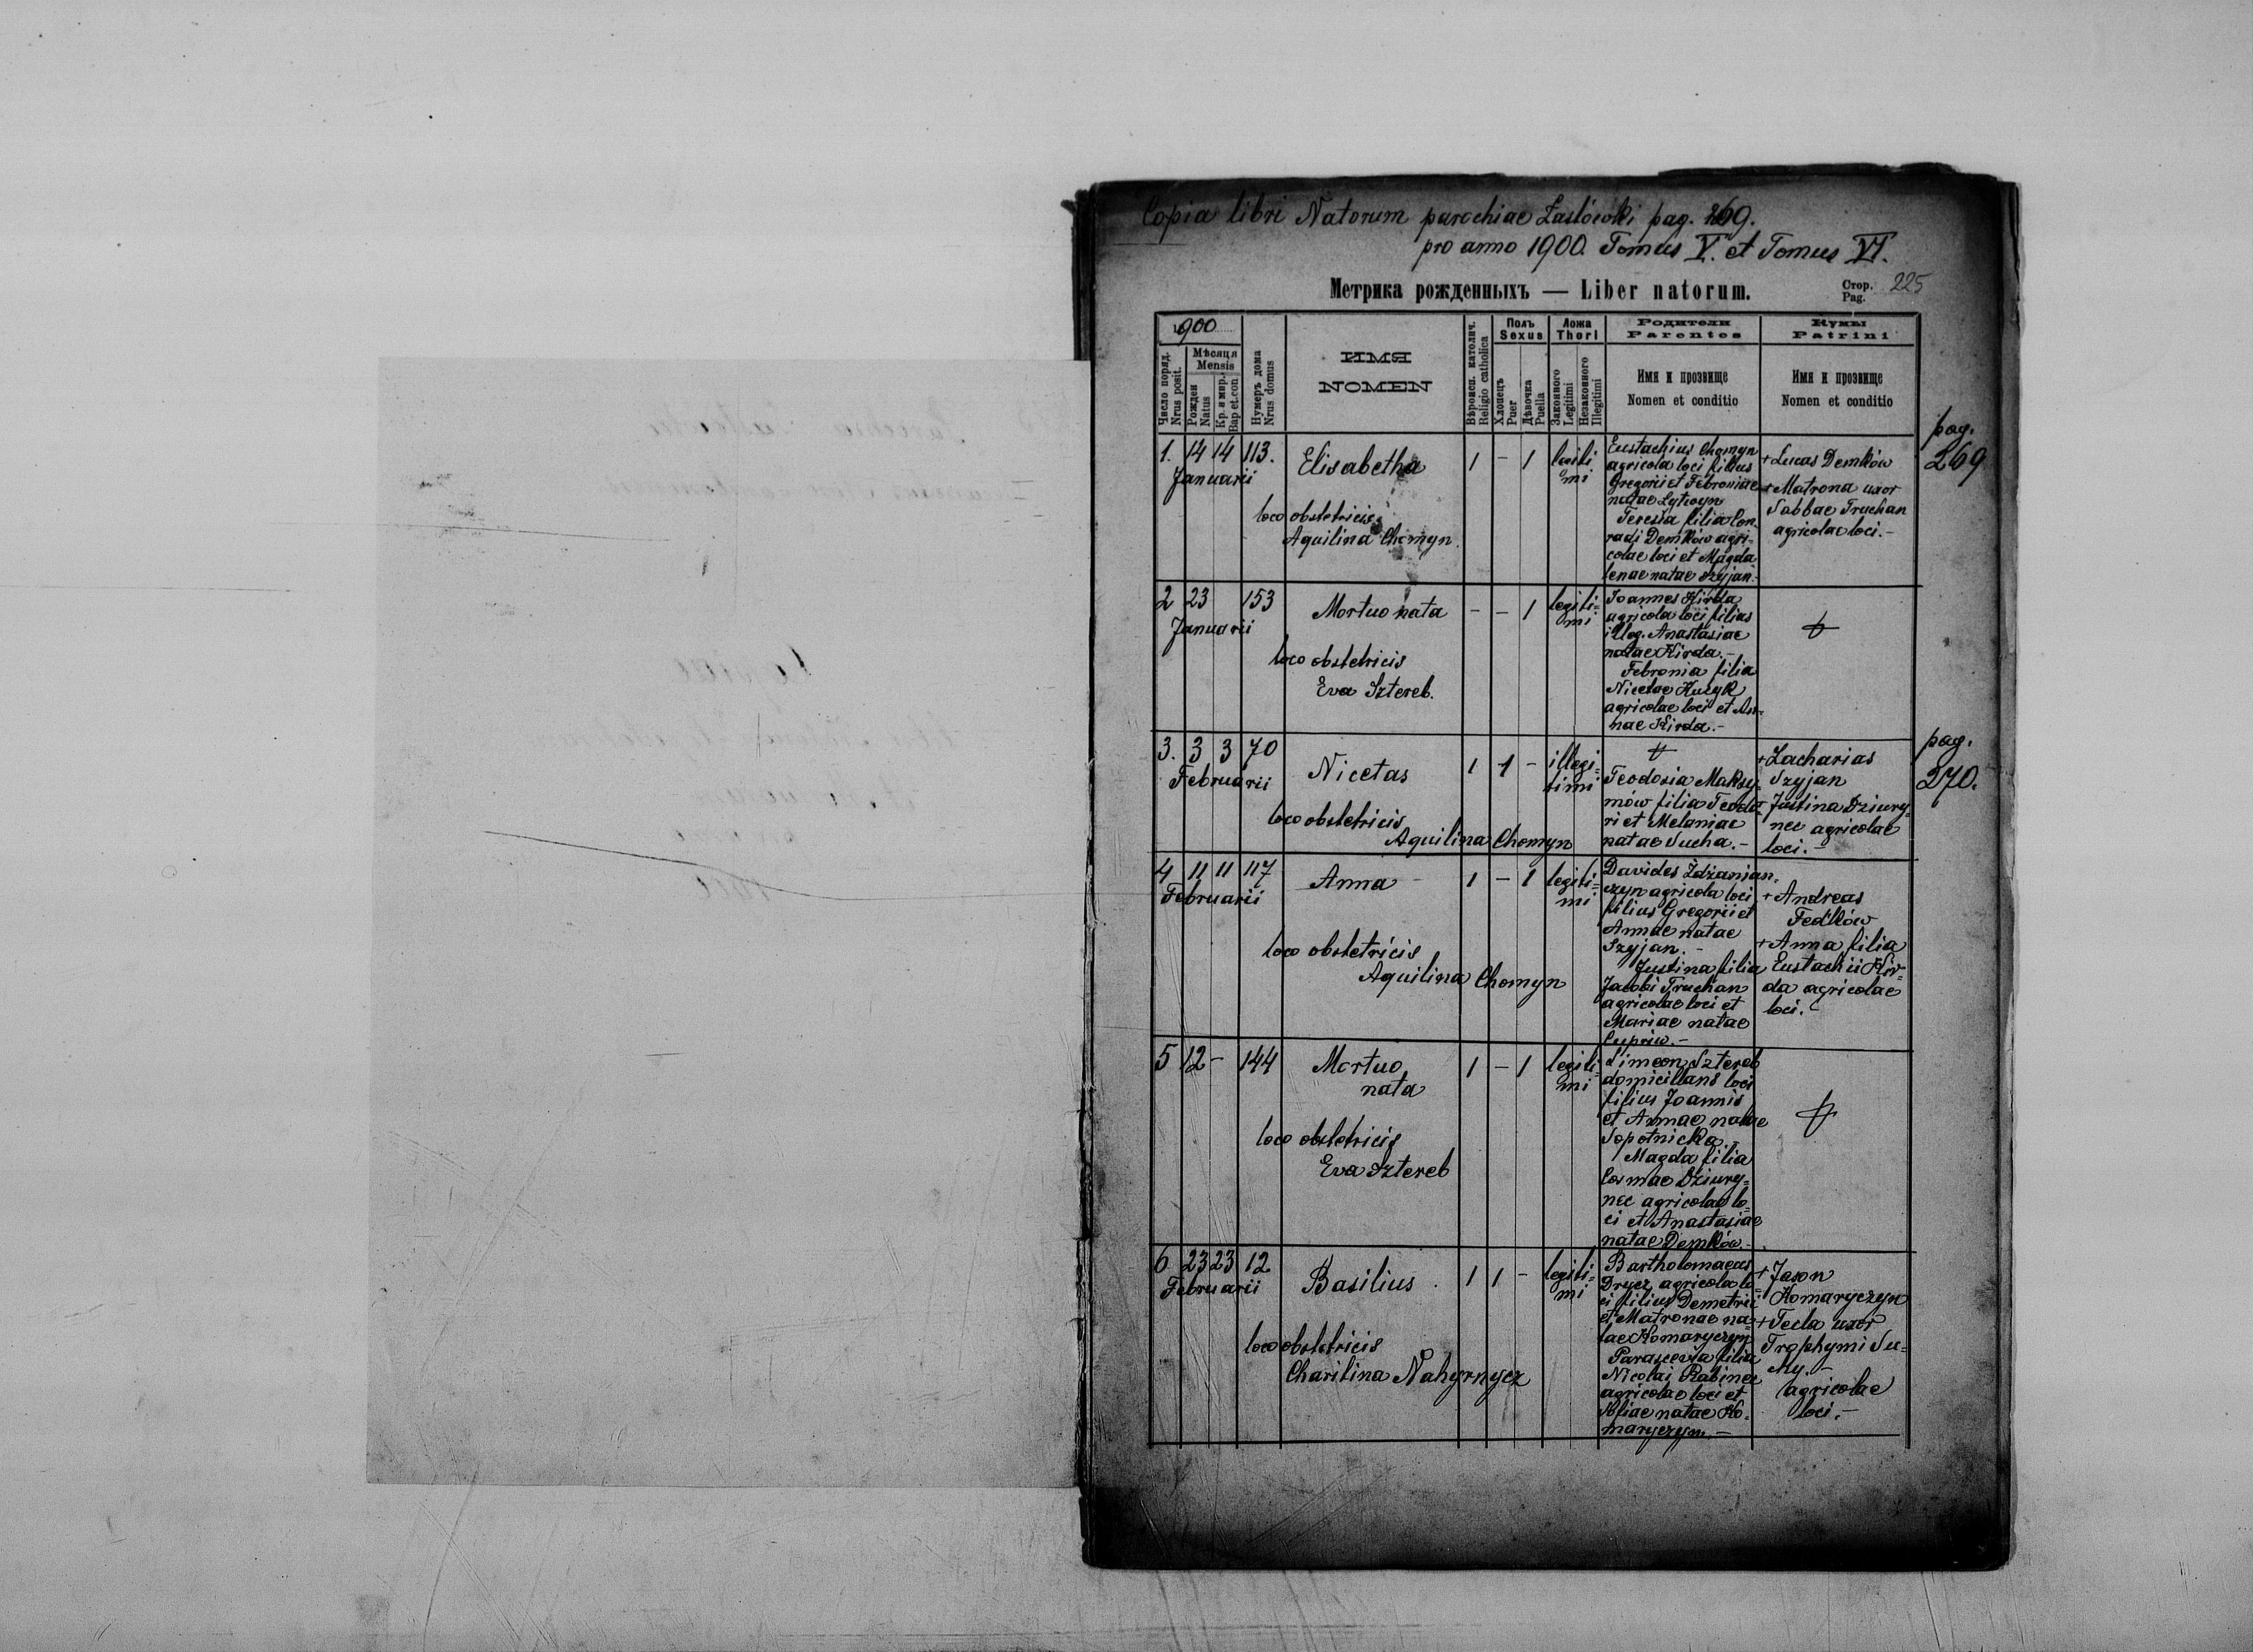 Copia libri Natorum parochiae Zasłówki pag. 269.
pro anno 1900. Tomus V. et Tomus VI.
Метрика рожденныхъ — Liber natorum.
Стор.
Pag. 225
1900
Число поряд.
Nrus posit.
Мѣсяця
Mensis
Рожден
Natus
Кр. и мир.
Bap et.con
Нумеръ дома
Nrus domus
ИМЯ
NOMEN
Вѣроисп. католич.
Religio catholica
Полъ
Sexus
Хлопецъ
Puer
Дѣвочка
Puella
Ложа
Thori
Законного
Legitimi
Незаконного
Illegitimi
Родители
Parentes
Имя и прозвище
Nomen et conditio
Кумы
Patrini
Имя и прозвище
Nomen et conditio
pag.
269
1. 14 14 113.
Januarii
Elisabetha
loco obstetricis
Aquilina Chomyn
1 - 1
legiti
mi
Eustachius Chomyn
agricola loci filius
Gregorii et Febroniae
natae Lytwyn
Teresia filia Con
radi Demków agri-
colae loci et Magda
lenae natae Szyjan.
+ Lucas Demków
+ Matrona uxor
Sabbae Truchan
agricolae loci.-
2 23 153
Januarii
Mortuo nata
loco obstetricis
Eva Sztereb.
- - 1
legiti=
mi
Joannes Hirda
agricola loci filius
illeg. Anastasiae
natae Hirda.-
Febronia filia
Nicetae Kuzyk
agricolae loci et An-
nae Hirda.-
pag.
270.
3. 3 3 70
Februarii
Nicetas
loco obstetricis
Aquilina Chomyn
1 1 -
illegi=
timi
Teodosia Maksy=
mów filia Teodo=
ri et Melaniae
natae Sucha.-
+ Zacharias
Szyjan
+ Justina Dziury=
nec agricolae
loci.-
4 11 11 117
Februarii
Anna
loco obstetricis
Aquilina Chomyn
1 - 1
legiti=
mi
Davides Zdzanjan=
czyn agricola loci
filius Gregorii et
Annae natae
Szyjan.-
Justina filia
Jacobi Truchan
agricolae loci et
Mariae natae
+ Andreas
Fedków
+ Anna filia
Eustachii Hir=
da agricolae
loci.
5 12 - 144
Mortuo
nata
loco obstetricis
Eva Sztereb
1 - 1
legiti=
mi
Simeon Sztereb
domicilians loci
filius Joannis
et Annae natae
Sopotnicka.-
Magda filia
Cosmae Dziury=
nec agricolae lo=
ci et Anastasiae
natae Demków.-
6 23 23 12
Februarii
Basilius
loco obstetricis
Charitina Nahyrnycz
1 1 -
legiti=
mi
Bartholomaeus
Drycz agricola lo=
ci filius Demetrii
et Matronae na=
tae Komaryczyn
Parascevia filia
Nicolai Rabinec
agricolae loci et
Juliae natae Ko=
maryczyn.-
+ Jason
Komaryczyn
+ Tecla uxor
Trophymi Su=
chy.-
agricolae
loci.-